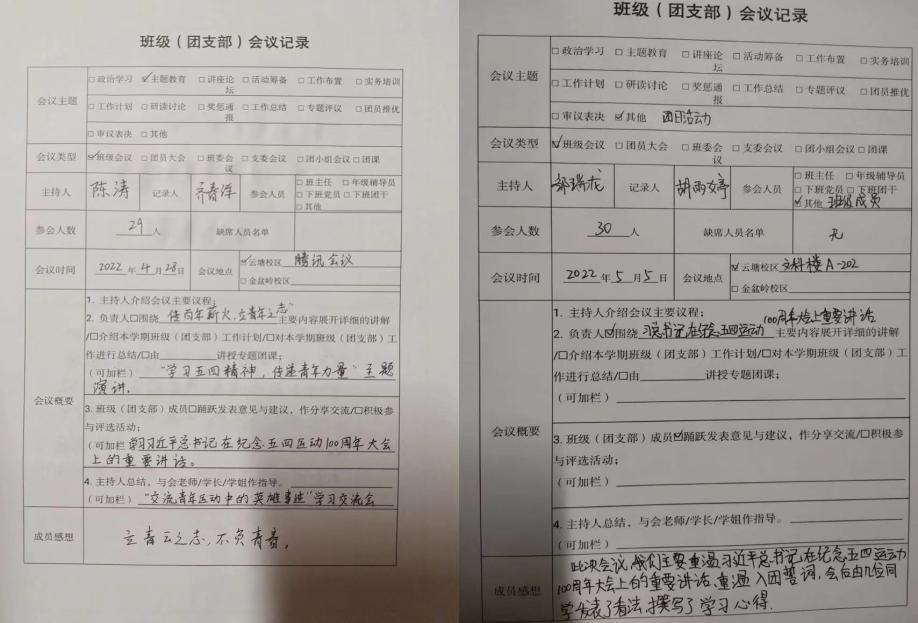 班级（团支部）会议记录
会议主题
□政治学习 ☑主题教育 □讲座论坛 □活动筹备 □工作布置 □实务培训
□工作计划 □研读讨论 □奖惩通报 □工作总结 □专题评议 □团员推优
□审议表决 □其他
会议类型 ☑班级会议 □团员大会 □班委会议 □支委会议 □团小组会议 □团课
主持人 陈涛 记录人 齐春洋 参会人员 □班主任 □年级辅导员
□下班党员 □下班团干
□其他
参会人数 29人 缺席人员名单
会议时间 2022年4月28日 会议地点 ☑云塘校区 腾讯会议
□金盆岭校区
会议概要
1. 主持人介绍会议主要议程；
2. 负责人□围绕 传百年薪火，立青年之志 主要内容展开详细的讲解
/□介绍本学期班级（团支部）工作计划/□对本学期班级（团支部）工
作进行总结/□由 讲授专题团课；
（可加栏） "学习五四精神，传递青年力量"主题
演讲.
3. 班级（团支部）成员□踊跃发表意见与建议，作分享交流/□积极参
与评选活动；
（可加栏 学习习近平总书记在纪念五四运动100周年大会
上的重要讲话。
4. 主持人总结，与会老师/学长/学姐作指导。
（可加栏） "交流青年运动中的英雄事迹"学习交流会
成员感想 立青云之志，不负青春。
班级（团支部）会议记录
会议主题
□政治学习 □主题教育 □讲座论坛 □活动筹备 □工作布置 □实务培训
□工作计划 □研读讨论 □奖惩通报 □工作总结 □专题评议 □团员推优
□审议表决 ☑其他 团日活动
会议类型 ☑班级会议 □团员大会 □班委会议 □支委会议 □团小组会议 □团课
主持人 瑞龙 记录人 胡雨婷 参会人员 □班主任 □年级辅导员
□下班党员 □下班团干
☑其他 班级成员
参会人数 30人 缺席人员名单 无
会议时间 2022年5月5日 会议地点 ☑云塘校区 文科楼A-202
□金盆岭校区
会议概要
1. 主持人介绍会议主要议程；
2. 负责人☑围绕 习总书记在纪念五四运动100周年大会上重要讲话 主要内容展开详细的讲解
/□介绍本学期班级（团支部）工作计划/□对本学期班级（团支部）工
作进行总结/□由 讲授专题团课；
（可加栏）
3. 班级（团支部）成员☑踊跃发表意见与建议，作分享交流/□积极参
与评选活动；
（可加栏）
4. 主持人总结，与会老师/学长/学姐作指导。
（可加栏）
成员感想 此次会议，我们主要重温习近平总书记在纪念五四运动
100周年大会上的重要讲话、重温入团誓词，会后由几位同
学发表了看法，撰写了学习心得.